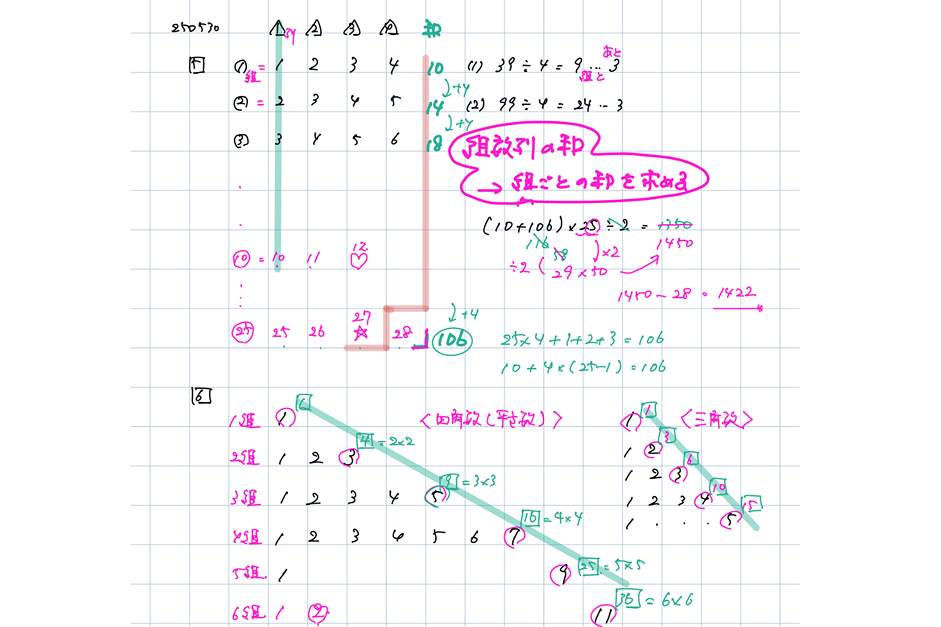 250530 1 2 3 4 和
5 (1)組 = 1 2 3 4 10 (1) 39÷4 = 9 … 3
組と あと
(2) = 2 3 4 5 14 (2) 99÷4 = 24 … 3
↓+4
(3) 3 4 5 6 18
↓+4
組数列の和
→ 組ごとの和を求める
(10+106)×25÷2 = 1350
116 58 ×2 1450
÷2 ( 29×50
(10) = 10 11 12 ♡
1450 − 28 = 1422
27 ↓+4
(25) 25 26 ☆ 28 106
25×4+1+2+3 = 106
10+4×(25−1) = 106
6
1組 1 1 〈四角数(平方数)〉 1 1 〈三角数〉
2組 1 2 3 4 = 2×2 1 2 3
3組 1 2 3 4 5 9 = 3×3 1 2 3 6
4組 1 2 3 4 5 6 7 16 = 4×4 1 2 3 4 10
1 · · · 5 15
5組 1 9 25 = 5×5
6組 1 2 11 36 = 6×6